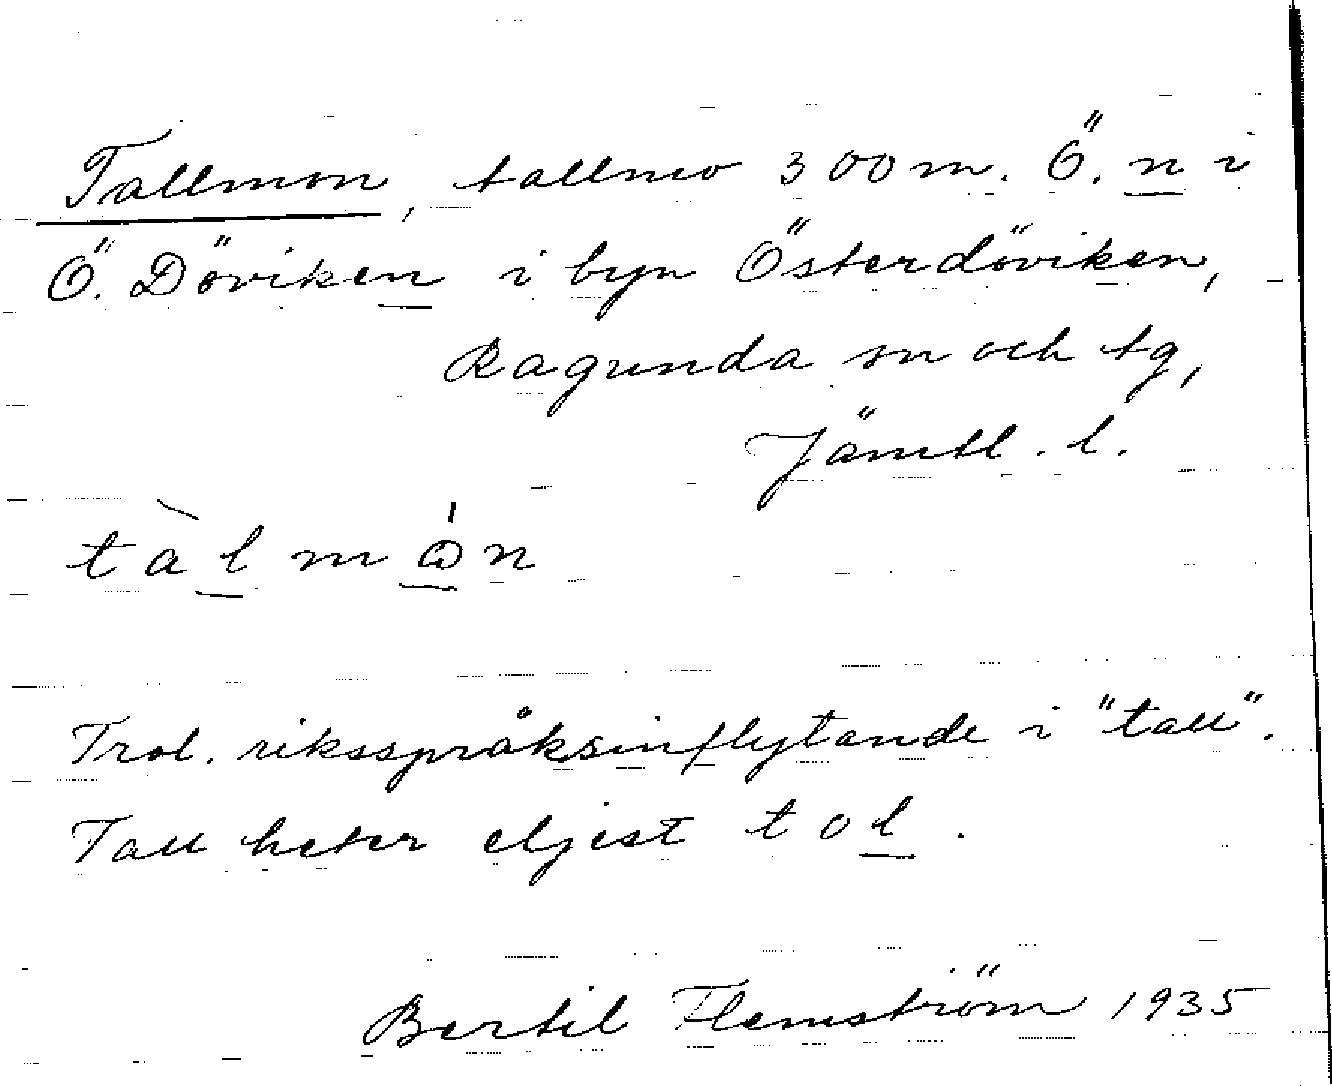 Tallmon, tallmo 300 m. Ö. n i
Ö. Döviken i byn Österdöviken,
Ragunda sn och tg,
Jämtl. l.
tàlmån
Trol. riksspråksinflytande i "tall".
Tall heter eljest tol.
Bertil Flemström 1935